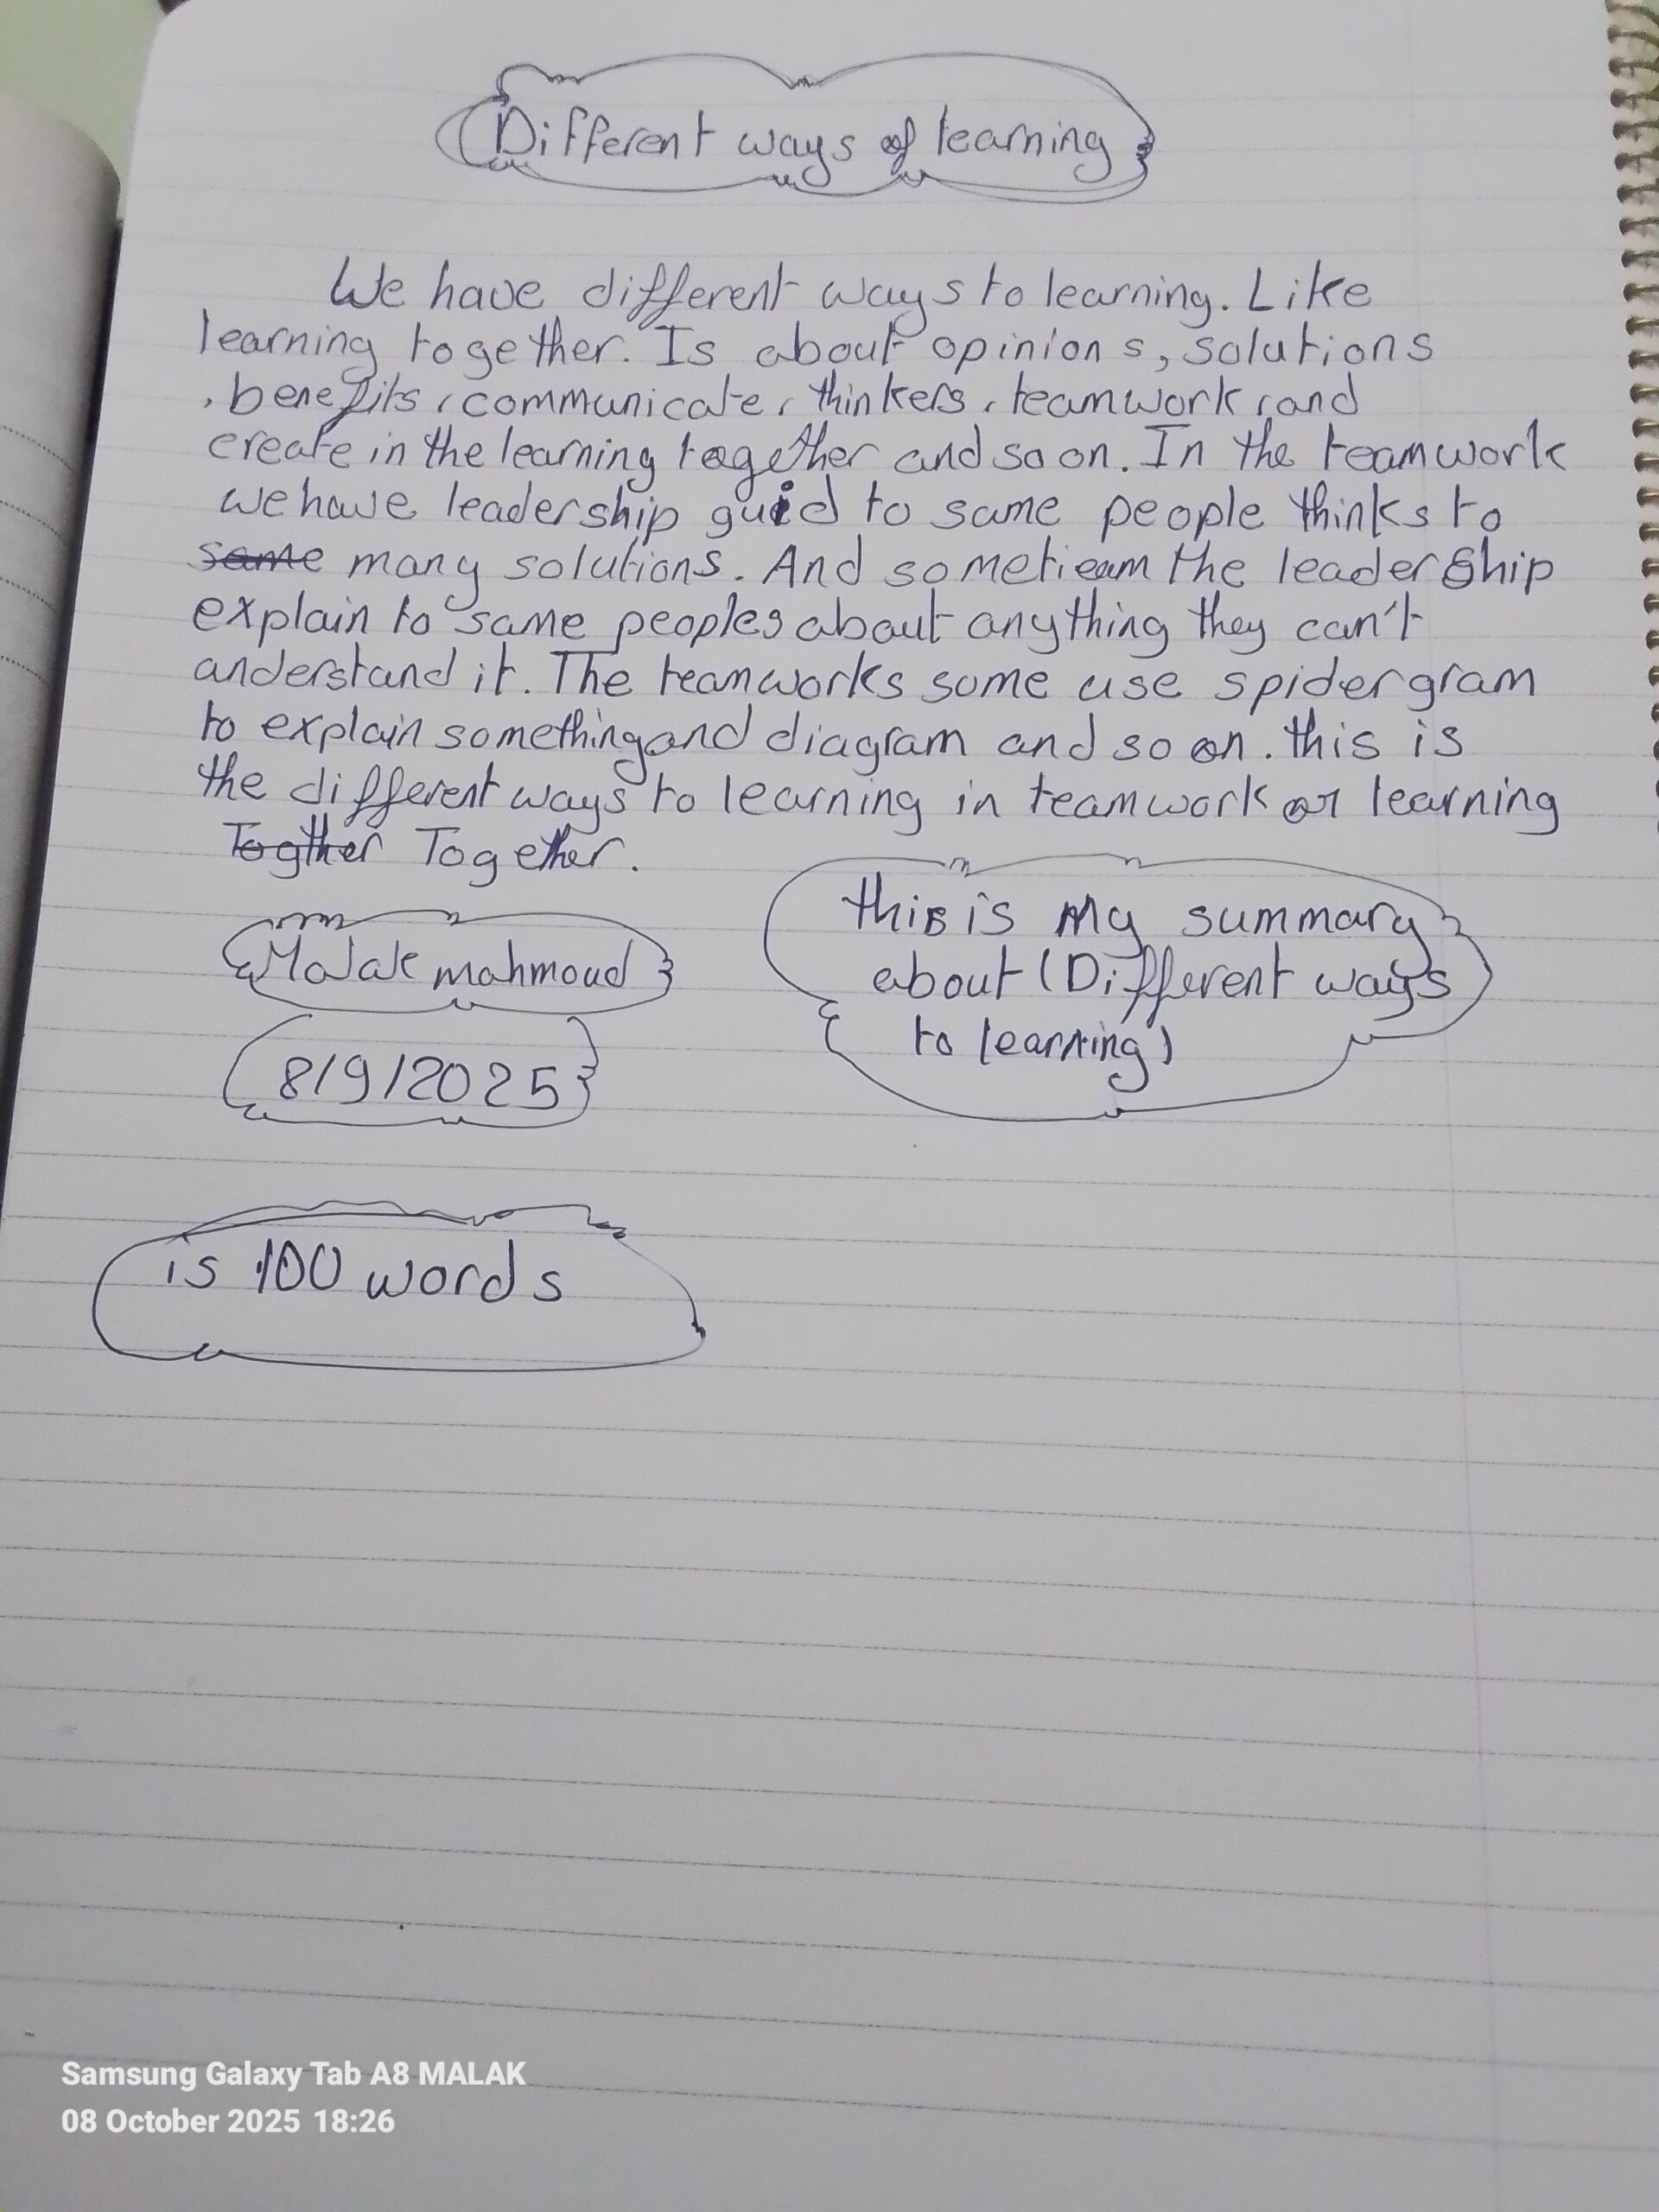 Different ways of learning
We have different ways to learning. Like
learning together. Is about opinions, solutions
, benefits, communicate, thinkers, teamwork, and
create in the learning together and so on. In the teamwork
we have leadership guid to same people thinks to
same many solutions. And sometieam the leadership
explain to same peoples about anything they can't
anderstand it. The teamworks some use spidergram
to explain something and diagram and so on. this is
the different ways to learning in teamwork or learning
Togther Together.
this is my summary
about (Different ways
to learning)
Malak mahmoud
8/9/2025
is 100 words
Samsung Galaxy Tab A8 MALAK
08 October 2025 18:26